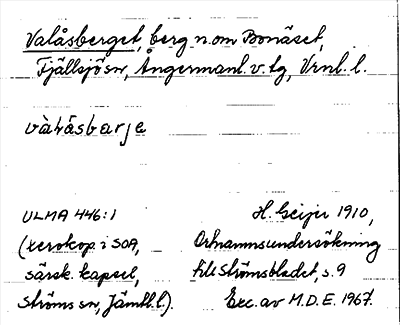 Valåsberget, berg n. om Bonäset,
Fjällsjö sn, Ångermanl. v. tg, Vrnl. l.
vàlåsbarje
ULMA 446:1
(xerokop. i SOA,
särsk. kapsel,
Ströms sn, Jämtl. l.).
H. Geijer 1910,
Ortnamnsundersökning
till Strömsbladet, s. 9
Exc. av M.D.E. 1967.